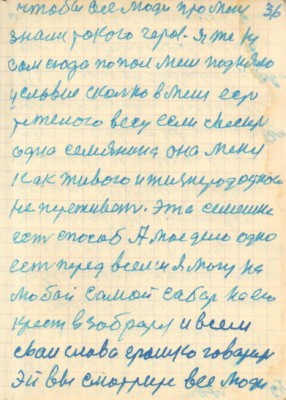 чтобы все люди про меня 36
знали такого героя. Я же и
сам сюда попал меня подняло
условие сколко в меня еср
тяжелого весу если свесир
одна семянина она меня
как живого и жизнерадосного
не переживёт. Эта семешка
ест способ А мое дело одно
ест перед всем и я могу на
любой самой собор на его
крест взабрарся и всем
сваи слова громко говарир
Эй вы смотрите все люди